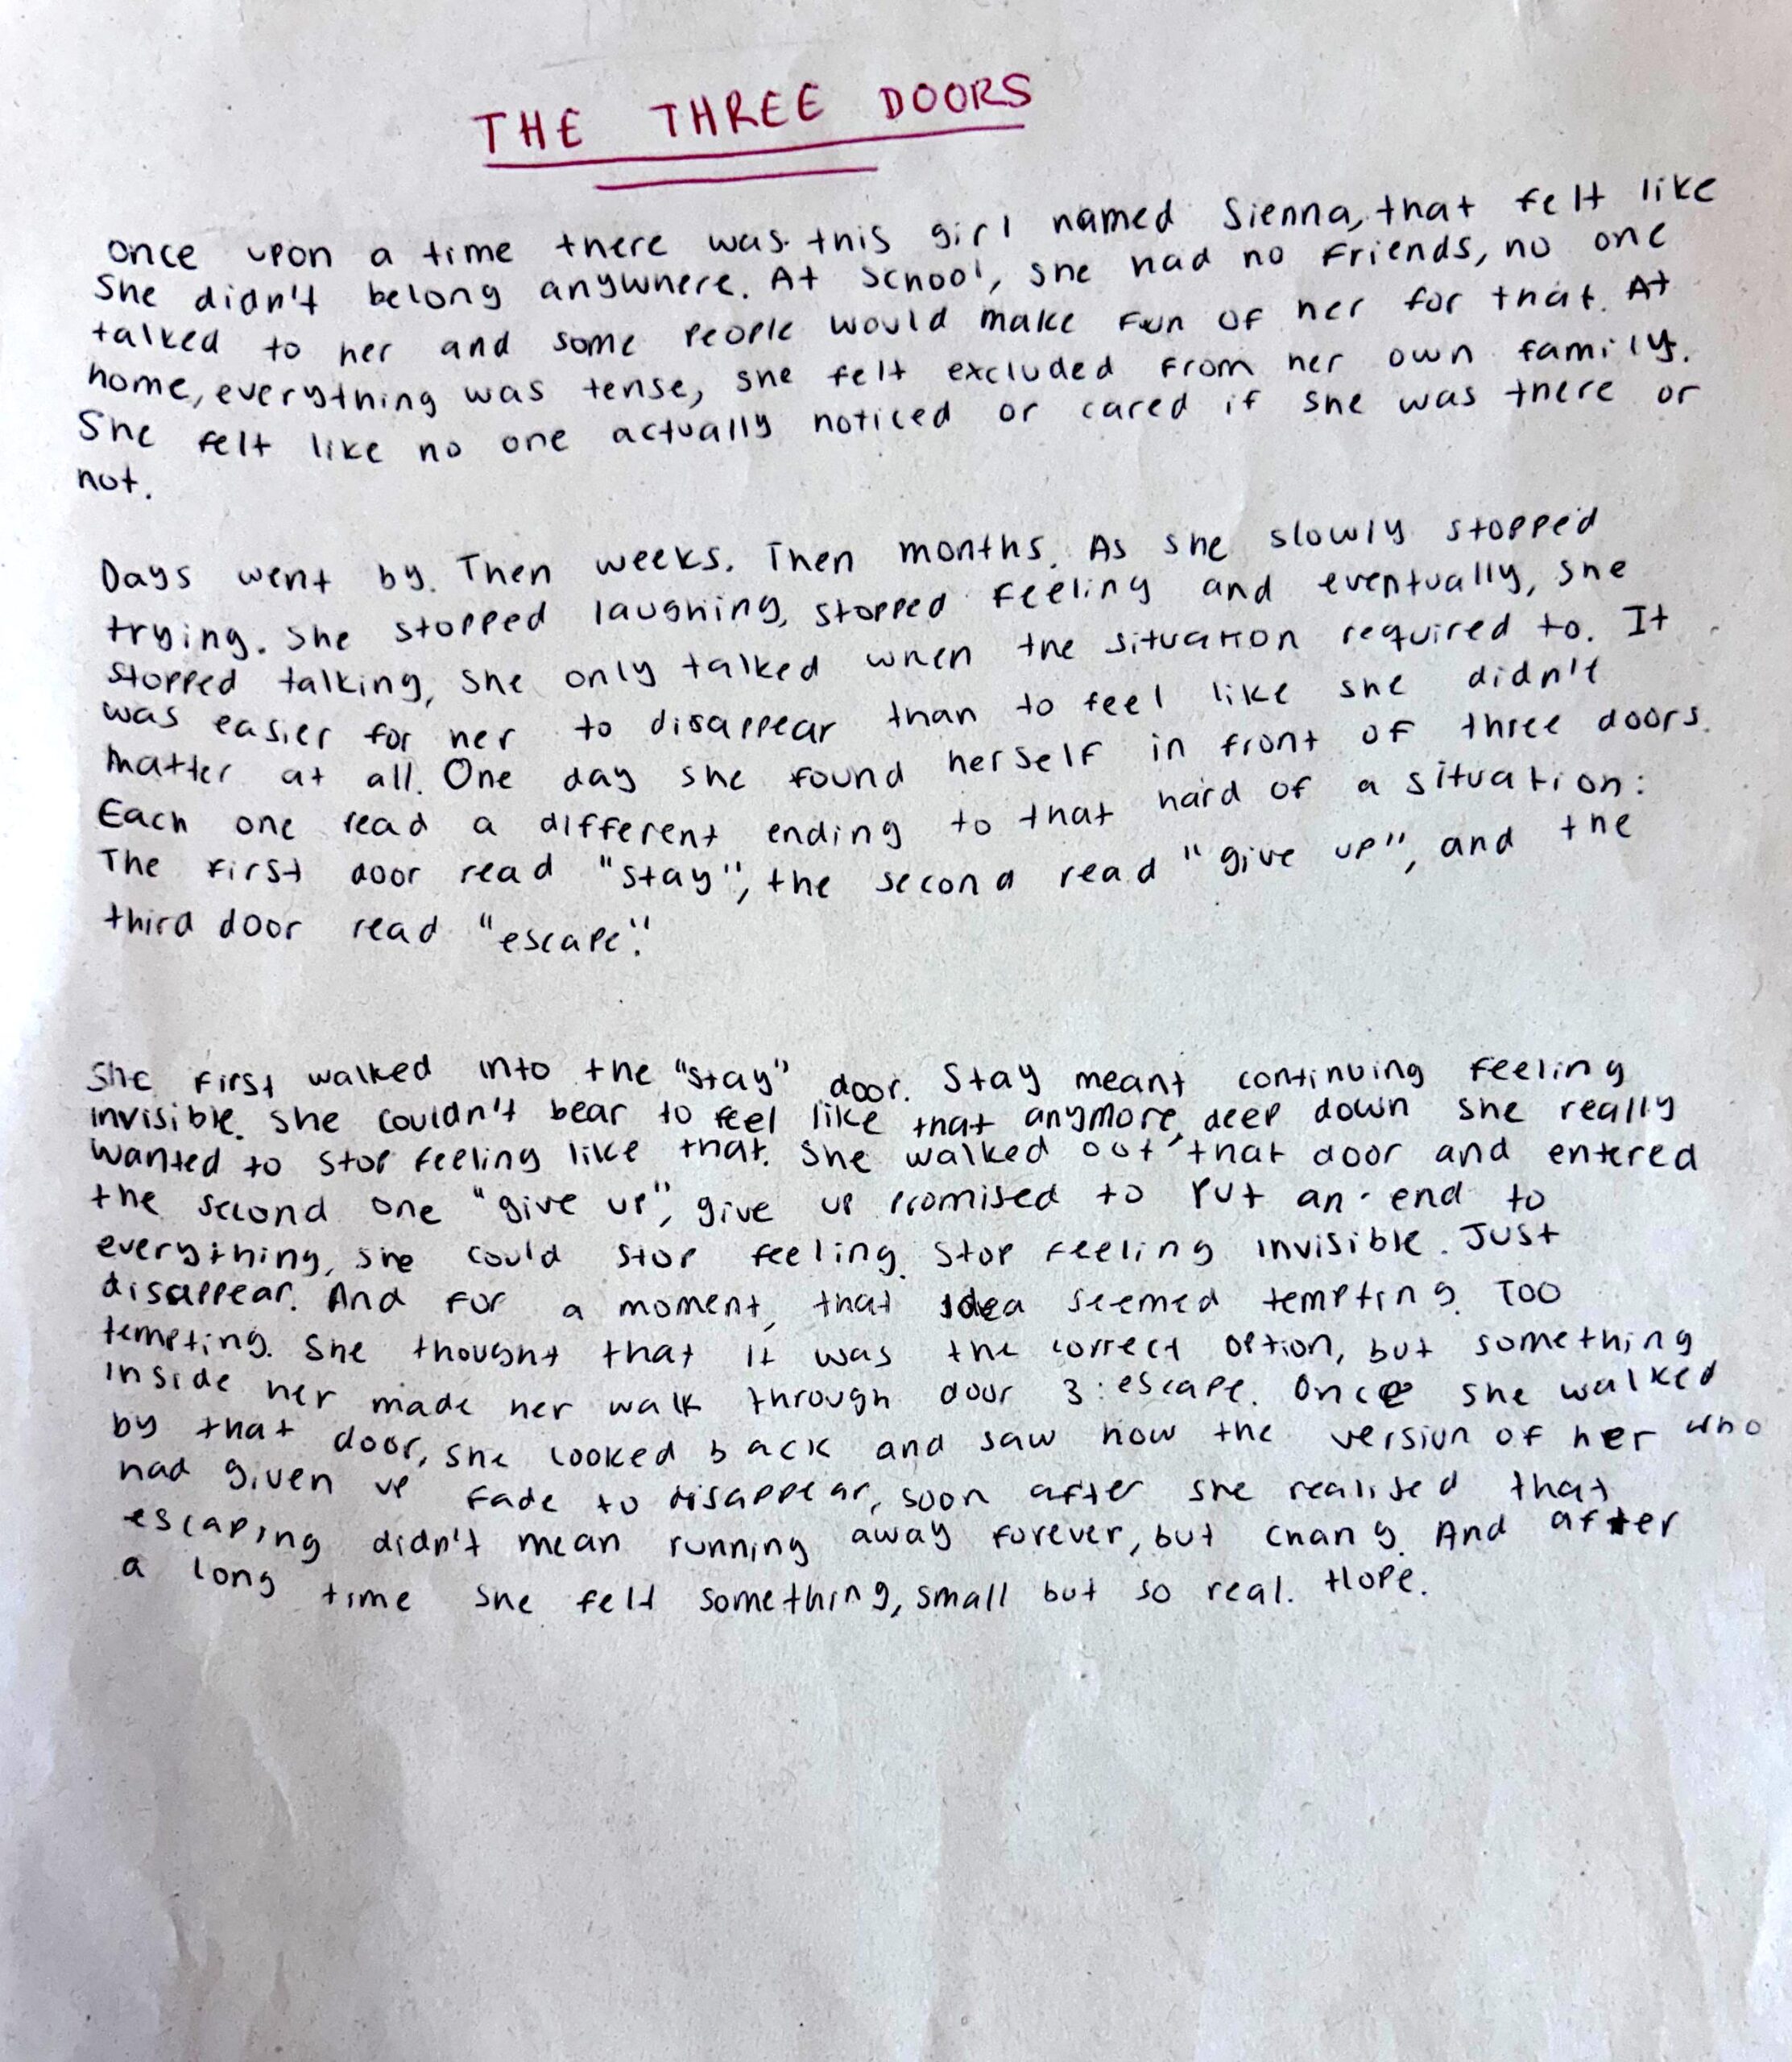 THE THREE DOORS
once upon a time there was this girl named Sienna, that felt like
She didn't belong anywhere. At School, she had no Friends, no one
talked to her and some people would make fun of her for that. At
home, everything was tense, she felt excluded from her own family.
She felt like no one actually noticed or cared if she was there or
not.
Days went by. Then weeks. Then months. As she slowly stopped
trying. She stopped laughing, stopped feeling and eventually, she
stopped talking, she only talked when the situation required to. It
was easier for her to disappear than to feel like she didn't
matter at all. One day she found herself in front of three doors.
Each one read a different ending to that hard of a situation:
The first door read "stay", the second read "give up", and the
third door read "escape".
She first walked into the "stay" door. Stay meant continuing feeling
invisible. She couldn't bear to feel like that anymore, deep down she really
wanted to stop feeling like that. She walked out that door and entered
the second one "give up", give up promised to put an end to
everything, she could stop feeling. Stop feeling invisible. Just
disappear. And for a moment, that idea seemed tempting. Too
tempting. She thought that it was the correct option, but something
inside her made her walk through door 3: escape. Once she walked
by that door, she looked back and saw how the version of her who
had given up fade to disappear, soon after she realised that
escaping didn't mean running away forever, but chang. And after
a long time she felt something, small but so real. Hope.